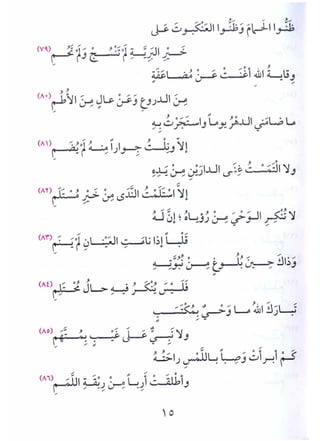 ظَنُّوا الحَمامَ وَظَنُّوا العَنْكَبوتَ عَلى
خَيْرِ البَرِيَّةِ لَمْ تَنْسُجْ وَلَمْ تَحُمِ (٧٩)
وِقايةُ اللهِ أَغْنَتْ عَنْ مُضاعَفَةٍ
مِنَ الدروعِ وَعَنْ عالٍ مِنَ الأُطُمِ (٨٠)
ما ضامَني الدهْرُ يوماً واستَجَرْتُ بِهِ
إلاّ ونِلْتُ جِواراً مِنهُ لَمْ يُضَمِ (٨١)
ولا الْتَمَسْتُ غِنى الدارَيْنِ مِنْ يَدِهِ
إلاّ اسْتَلَمْتُ النَّدَى مِنْ خَيْرِ مُسْتَلَمِ (٨٢)
لا تُنْكِرِ الوَحْيَ مِنْ رُؤياهُ ؛ إنَّ لَهُ
قَلْباً إذا نامَتِ العَيْنانِ لَمْ يَنَمِ (٨٣)
وَذاكَ حِينَ بُلُوغٍ مِنْ نُبُوَّتِهِ
فَلَيْسَ يُنْكَرُ فيهِ حالُ مُحْتَلِمِ (٨٤)
تَبارَكَ اللهُ ما وَحْيٌ بِمُكْتَسَبٍ
ولا نَبِيٌّ عَلَى غَيْبٍ بِمُتَّهَمِ (٨٥)
كَمْ أبرأتْ وَصِباً باللَّمْسِ راحَتُهُ
وأطْلَقَتْ أرِباً مِنْ رِبْقَةِ اللَّمَمِ (٨٦)
١٥